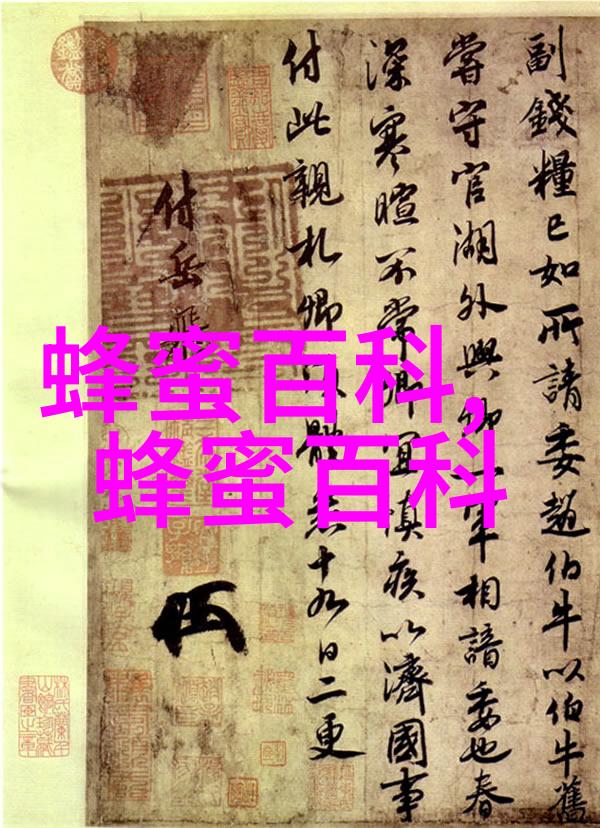 蜂蜜百科,
蜂蜜百科
副錢糧已如所請委趙伯牛以伯牛舊
嘗守官湖外與卿一軍相諳委也春
深寒暄不常卿宜慎疾以濟國事
付此親札卿 體悉十九日二更
付岳飛